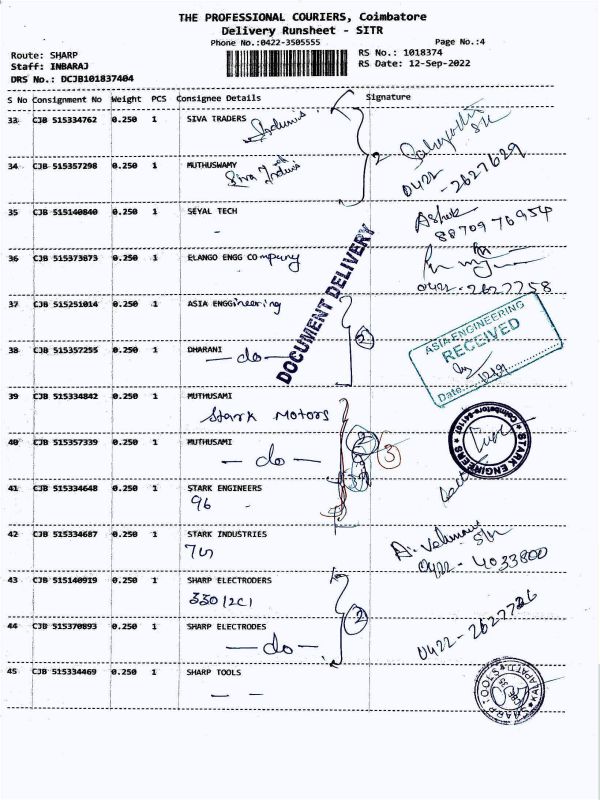 THE PROFESSIONAL COURIERS, Coimbatore
Delivery Runsheet - SITR
Phone No.:0422-3505555 Page No.:4
Route: SHARP RS No.: 1018374
Staff: INBARAJ RS Date: 12-Sep-2022
DRS No.: DCJB101837404
S No Consignment No Weight PCS Consignee Details Signature
33 CJB 515334762 0.250 1 SIVA TRADERS
34 CJB 515357298 0.250 1 MUTHUSWAMY
Siva
2
0422-2627629
35 CJB 515140840 0.250 1 SEYAL TECH
Ashok
8870976954
36 CJB 515373873 0.250 1 ELANGO ENGG COmpany
0422-2627758
DOCUMENT DELIVERY
37 CJB 515251014 0.250 1 ASIA ENGGineering
2
ASIA ENGINEERING
RECEIVED
Date
38 CJB 515357255 0.250 1 DHARANI
— do —
39 CJB 515334842 0.250 1 MUTHUSAMI
Stark Motors
40 CJB 515357339 0.250 1 MUTHUSAMI
— do —
2 3
STARK ENGINEERS
Coimbatore-641107
41 CJB 515334648 0.250 1 STARK ENGINEERS
96
42 CJB 515334687 0.250 1 STARK INDUSTRIES
0422-4033800
43 CJB 515140919 0.250 1 SHARP ELECTRODERS
330/2C1
2
44 CJB 515370893 0.250 1 SHARP ELECTRODES
— do —
0422-2627726
45 CJB 515334469 0.250 1 SHARP TOOLS
— —
SHARP TOOLS